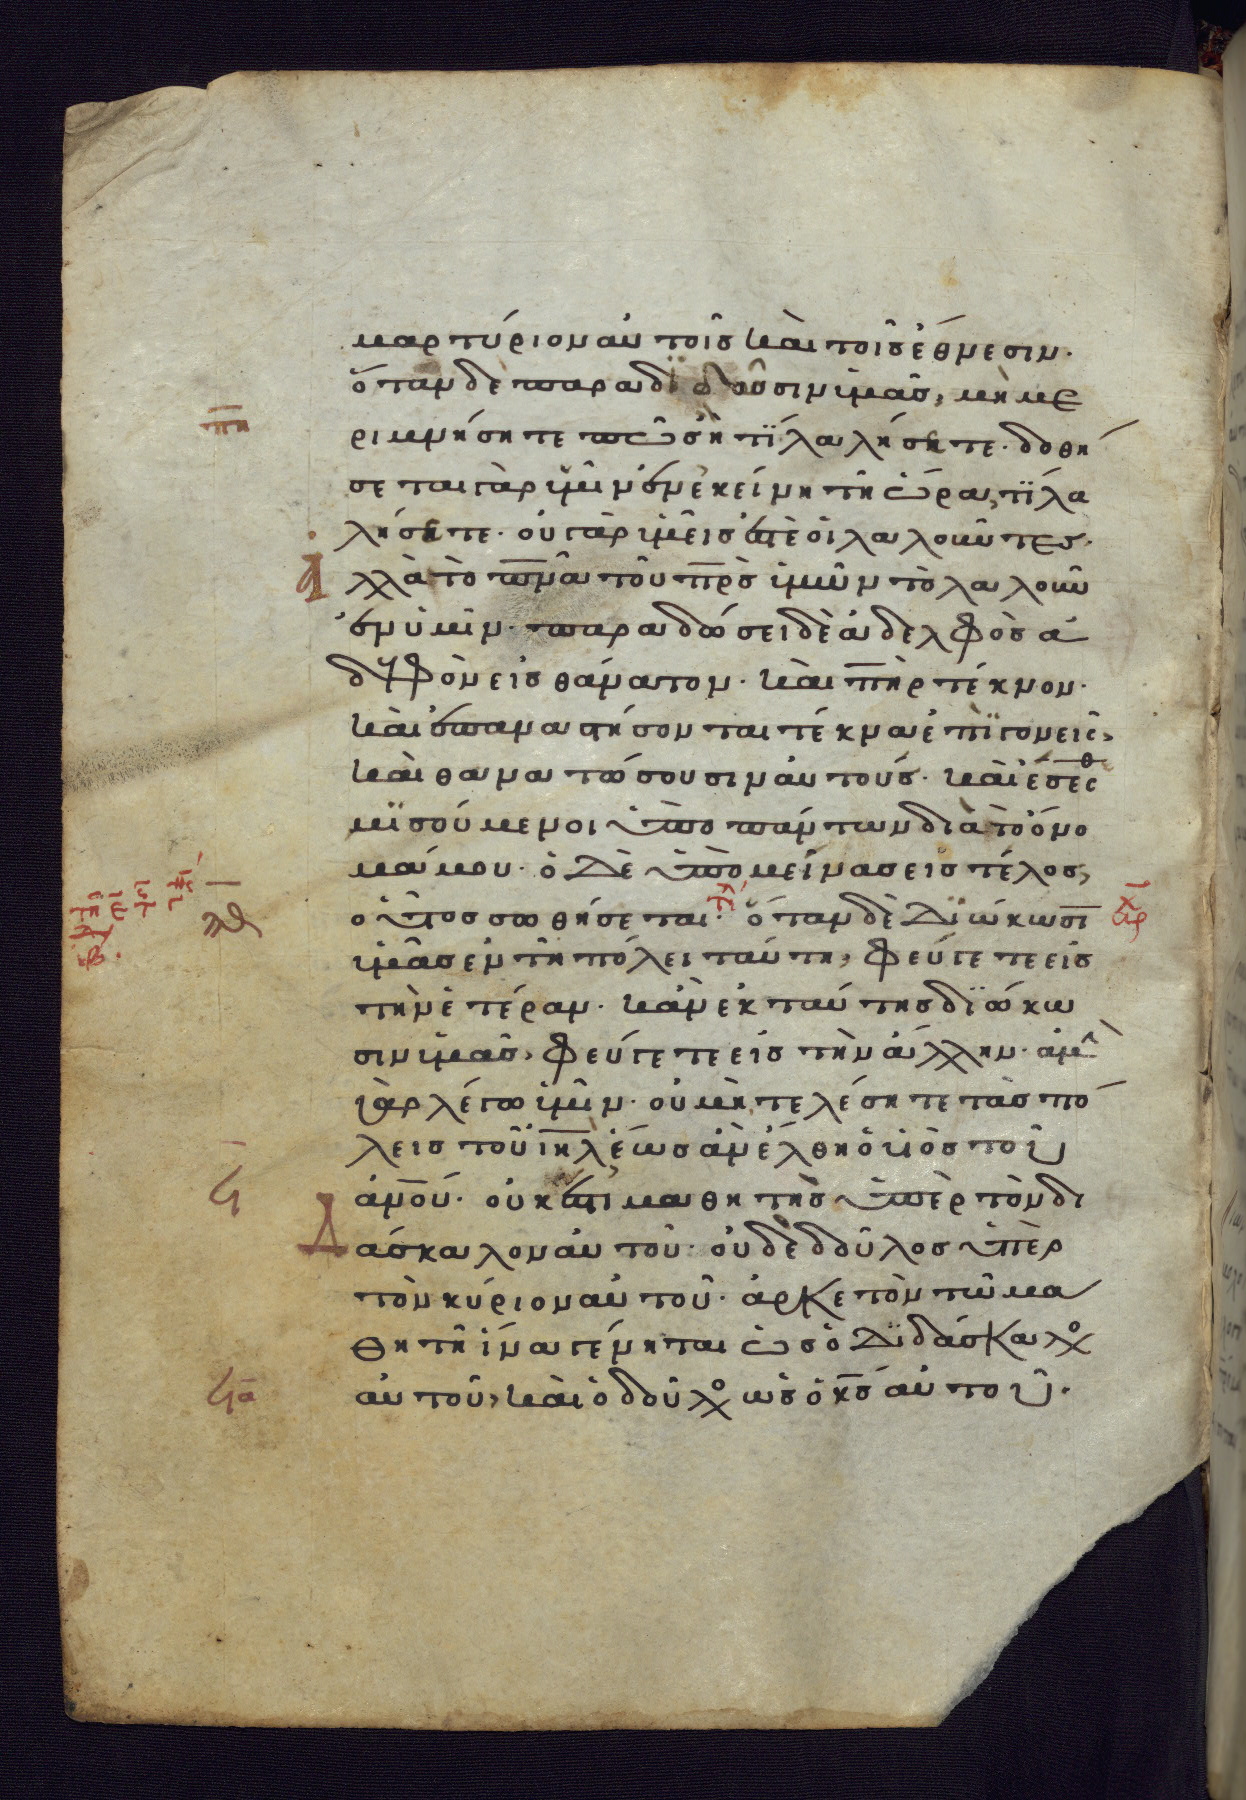 μαρτύριον αὐτοῖς καὶ τοῖς ἔθνεσιν·
ὅταν δὲ παραδϊδοῦσιν ὑμᾶς, μὴ με
ριμνήσητε πῶς ἢ τΐ λαλήσητε· δοθή
σεται γὰρ ὑμῖν ἐν ἐκείνη τῆ ὥρα, τΐ λα
λήσητε· οὐ γὰρ ὑμεῖς ἐστὲ οἱ λαλοῦντες·
ἀλλὰ τὸ πνα τοῦ πρς ὑμῶν τὸ λαλοῦν
ἐν ὑμῖν· παραδώσει δὲ ἀδελφὸς ἀ
δελφὸν εἰς θάνατον· καὶ πηρ τέκνον·
καὶ ἐπαναστήσονται τέκνα ἐπὶ γονεῖς,
καὶ θανατώσουσιν αὐτούς· καὶ ἔσεσθε
μϊσούμενοι ὑπὸ πάντων διὰ τὸ ὄνο
μά μου· ὁ δὲ ὑπομείνας εἰς τέλος,
οὗτος σωθήσεται· ὅταν δὲ διώκωσι
ὑμᾶς ἐν τῆ πόλει ταύτη, φεύγετε εἰς
τὴν ἑτέραν· κἂν ἐκ ταύτης διώκω
σιν ὑμᾶς, φεύγετε εἰς τὴν ἄλλην· ἀμὴν
γὰρ λέγω ὑμῖν· οὐ μὴ τελέσητε τὰς πό
λεις τοῦ ιηλ ἕως ἂν ἔλθη ὁ υἱὸς τοῦ
ανου· οὐκ ἔστι μαθητὴς ὑπὲρ τὸν δι
δάσκαλον αὐτοῦ· οὐδὲ δοῦλος ὑπὲρ
τὸν κύριον αὐτοῦ· ἀρκετὸν τῶ μα
θητῆ ἵνα γένηται ὡς ὁ διδάσκαλος
αὐτοῦ, καὶ ὁ δοῦλος ὡς ὁ κς αὐτοῦ·
πη
πθ
ϟ
ϟα